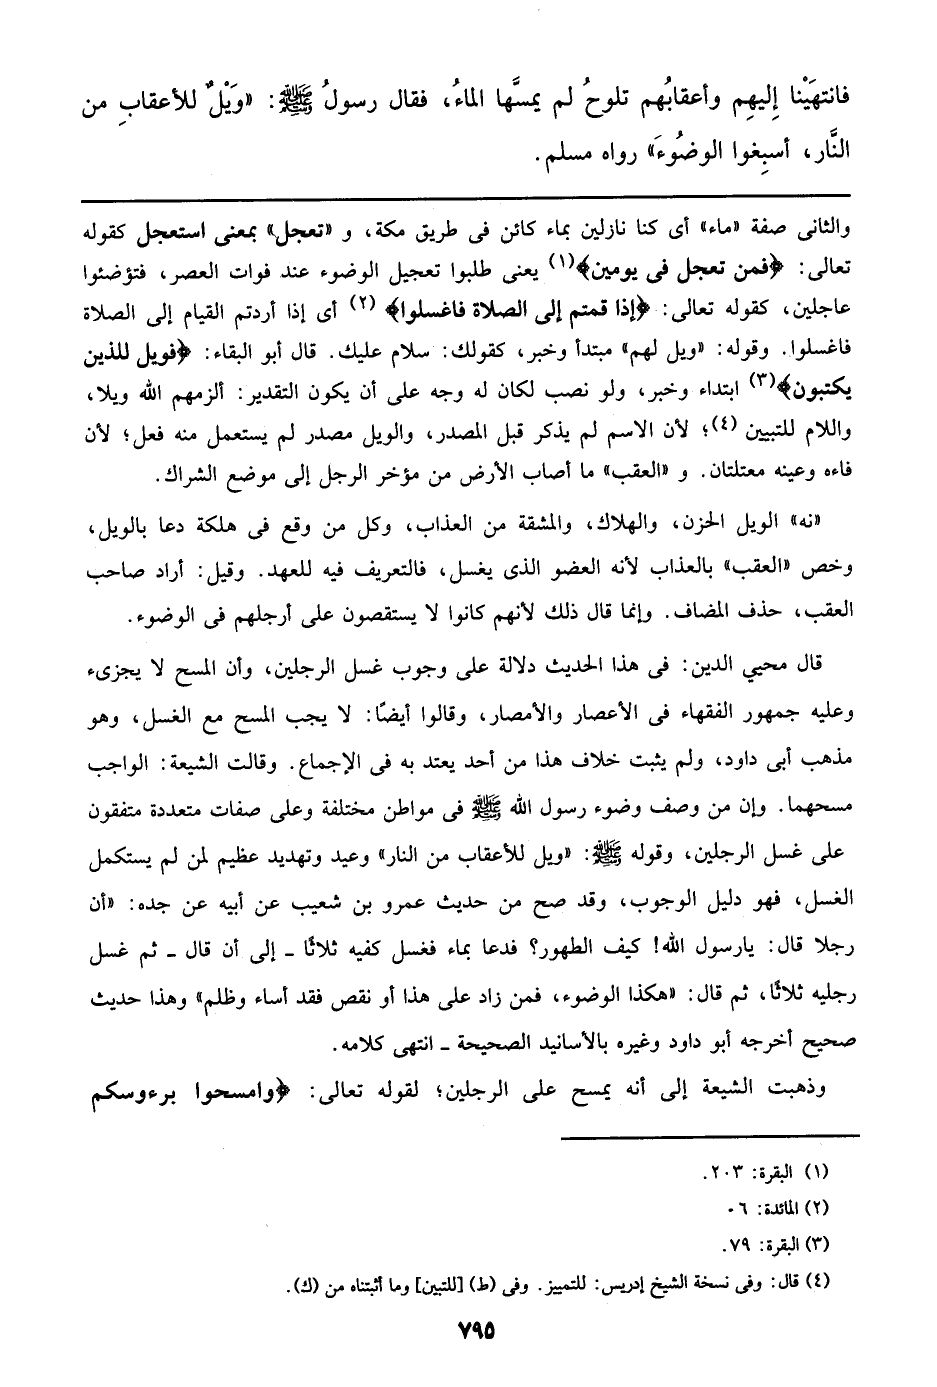 فانتهَيْنا إِليهِم وأعقابُهم تلوحُ لم يمسَّها الماءُ، فقال رسولُ ﷺ: «وَيْلٌ للأعقابِ من
النَّار، أسبِغوا الوضُوءَ» رواه مسلم.
والثانى صفة «ماء» أى كنا نازلين بماء كائن فى طريق مكة، و «تعجل» بمعنى استعجل كقوله
تعالى: ﴿فمن تعجل فى يومين﴾(١) يعنى طلبوا تعجيل الوضوء عند فوات العصر، فتوضئوا
عاجلين، كقوله تعالى: ﴿إذا قمتم إلى الصلاة فاغسلوا﴾ (٢) أى إذا أردتم القيام إلى الصلاة
فاغسلوا. وقوله: «ويل لهم» مبتدأ وخبر، كقولك: سلام عليك. قال أبو البقاء: ﴿فويل للذين
يكتبون﴾(٣) ابتداء وخبر، ولو نصب لكان له وجه على أن يكون التقدير: ألزمهم الله ويلا،
واللام للتبيين (٤)؛ لأن الاسم لم يذكر قبل المصدر، والويل مصدر لم يستعمل منه فعل؛ لأن
فاءه وعينه معتلتان. و «العقب» ما أصاب الأرض من مؤخر الرجل إلى موضع الشراك.
«نه» الويل الحزن، والهلاك، والمشقة من العذاب، وكل من وقع فى هلكة دعا بالويل،
وخص «العقب» بالعذاب لأنه العضو الذى يغسل، فالتعريف فيه للعهد. وقيل: أراد صاحب
العقب، حذف المضاف. وإنما قال ذلك لأنهم كانوا لا يستقصون على أرجلهم فى الوضوء.
قال محيي الدين: فى هذا الحديث دلالة على وجوب غسل الرجلين، وأن المسح لا يجزىء
وعليه جمهور الفقهاء فى الأعصار والأمصار، وقالوا أيضًا: لا يجب المسح مع الغسل، وهو
مذهب أبى داود، ولم يثبت خلاف هذا من أحد يعتد به فى الإجماع. وقالت الشيعة: الواجب
مسحهما. وإن من وصف وضوء رسول الله ﷺ فى مواطن مختلفة وعلى صفات متعددة متفقون
على غسل الرجلين، وقوله ﷺ: «ويل للأعقاب من النار» وعيد وتهديد عظيم لمن لم يستكمل
الغسل، فهو دليل الوجوب، وقد صح من حديث عمرو بن شعيب عن أبيه عن جده: «أن
رجلا قال: يارسول الله! كيف الطهور؟ فدعا بماء فغسل كفيه ثلاثًا ـ إلى أن قال ـ ثم غسل
رجليه ثلاثًا، ثم قال: «هكذا الوضوء، فمن زاد على هذا أو نقص فقد أساء وظلم» وهذا حديث
صحيح أخرجه أبو داود وغيره بالأسانيد الصحيحة ـ انتهى كلامه.
وذهبت الشيعة إلى أنه يمسح على الرجلين؛ لقوله تعالى: ﴿وامسحوا برءوسكم
(١) البقرة: ٢٠٣.
(٢) المائدة: ٠٦
(٣) البقرة: ٧٩.
(٤) قال: وفى نسخة الشيخ إدريس: للتمييز. وفى (ط) [للتبين] وما أثبتناه من (ك).
٧٩٥